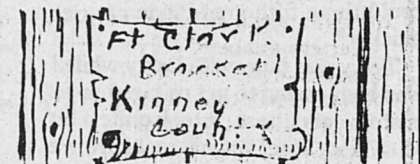 Ft Clark
Brackett
Kinney
County